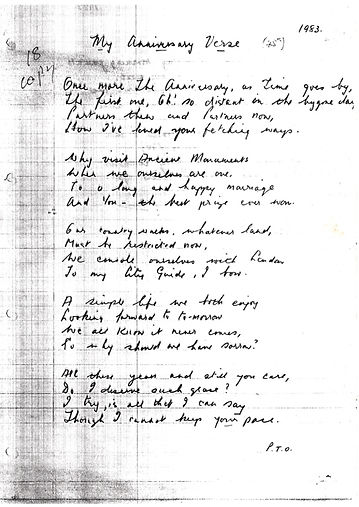 1983.
My Anniversary Verse (75th)
18
copy
Once more the Anniversary, as time goes by,
The first one, Oh! so distant in the bygone day,
Partners then and Partners now,
How I've loved your fetching ways.
Why visit Ancient Monuments
When we ourselves are one.
To a long and happy marriage
And You - the best prize ever won.
Our country walks, whatever land,
Must be restricted now,
We console ourselves with London
To my City Guide, I bow.
A simple life we both enjoy
Looking forward to to-morrow
We all know it never comes,
So why should we have sorrow?
All these years and still you care,
Do I deserve such grace?
I try, is all that I can say
Though I cannot keep your pace.
P.T.O.